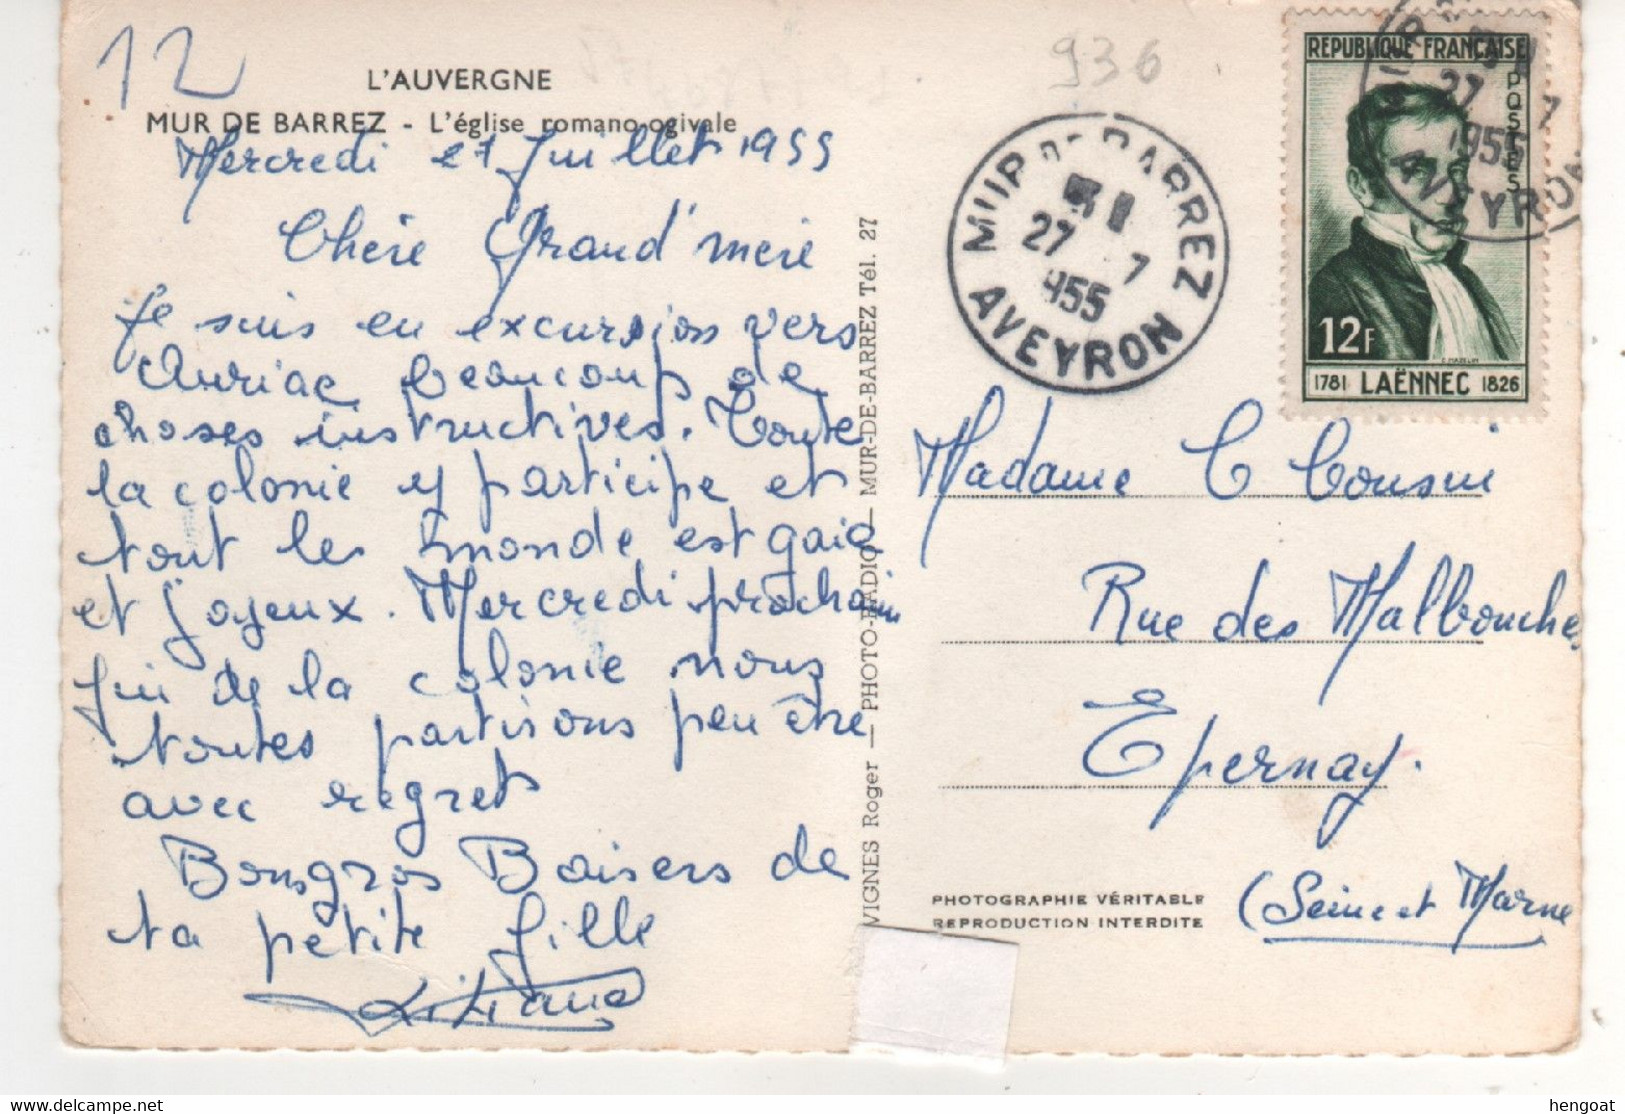 12
936
L'AUVERGNE
MUR DE BARREZ - L'église romano-ogivale
Mercredi 27 Juillet 1955
Chère Grand'mère
Je suis en excursion vers
Auriac beaucoup de
choses instructives. Toute
la colonie y participe et
tout le monde est gaie
et joyeux. Mercredi prochain
fin de la colonie nous
toutes partirons peu être
avec regret
Bons gros Baisers de
ta petite fille
Liliane
VIGNES Roger — PHOTO-RADIO — MUR-DE-BARREZ Tél. 27
MUR DE BARREZ
27 7
1955
AVEYRON
RÉPUBLIQUE FRANÇAISE
POSTES
12F
1781 LAËNNEC 1826
27 7
1955
AVEYRON
Madame C Cousin
Rue des Malbouches
Epernay.
(Seine et Marne
PHOTOGRAPHIE VÉRITABLE
REPRODUCTION INTERDITE
www.delcampe.net
hengoat